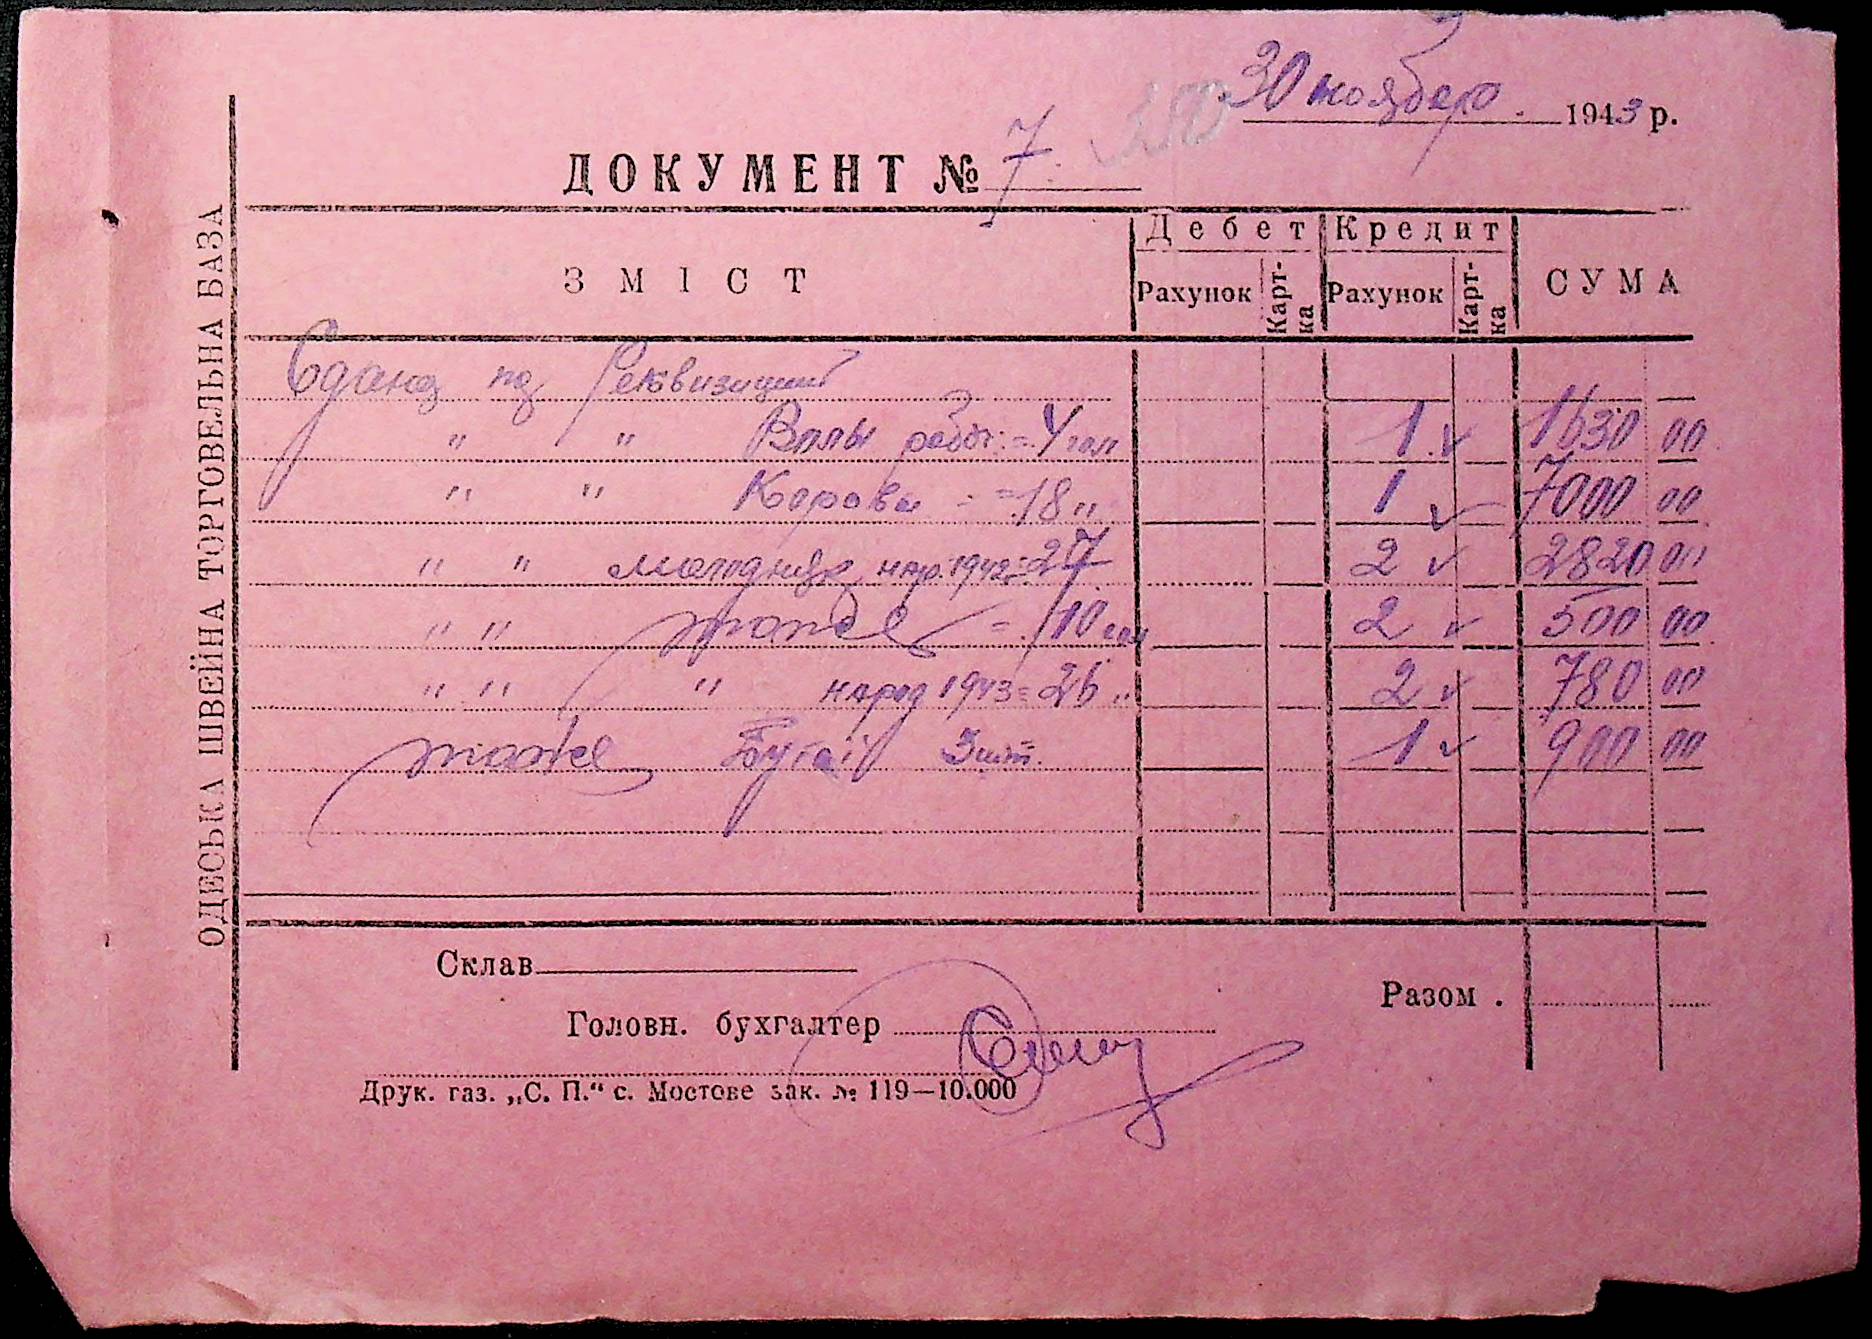 30 ноября 1943 р.
ДОКУМЕНТ № 7
ОДЕСЬКА ШВЕЙНА ТОРГОВЕЛЬНА БАЗА
ЗМІСТ Дебет Кредит СУМА
Рахунок Карт-ка Рахунок Карт-ка
Сдано по Реквизиции
" " Волы рабоч. = 4 гол 1 ✓ 1630 00
" " Корова = 18 " 1 ✓ 7000 00
" " молодняк нар. 1942 = 27 2 ✓ 2820 00
" " тоже = 10 гол 2 ✓ 500 00
" " " народ 1943 = 26 " 2 ✓ 780 00
тоже Бугаі 3 шт. 1 ✓ 900 00
Склав
Разом .
Головн. бухгалтер
Друк. газ. „С. П.“ с. Мостове зак. № 119—10.000